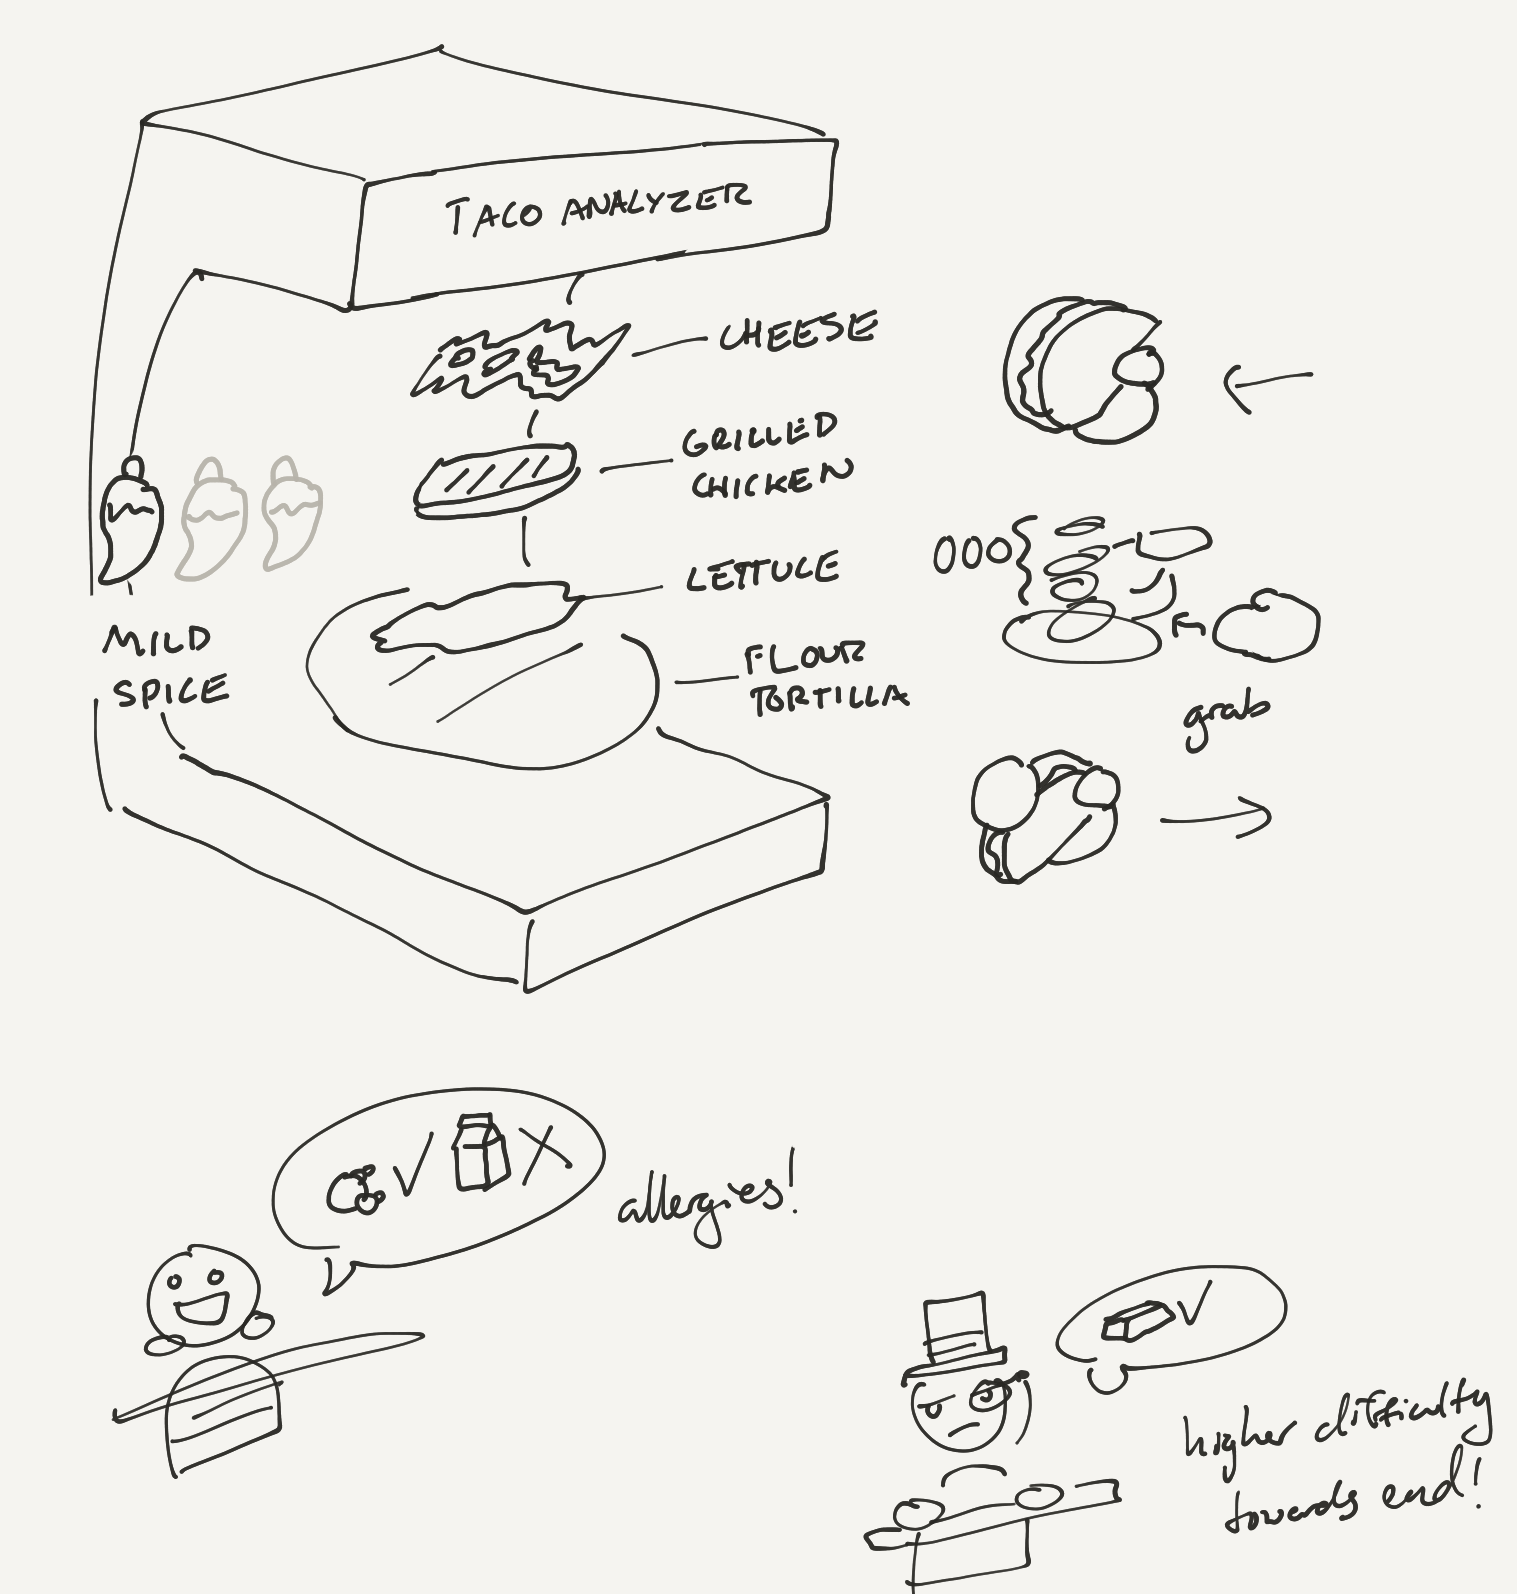 TACO ANALYZER
CHEESE
GRILLED
CHICKEN
LETTUCE
FLOUR
TORTILLA
MILD
SPICE
grab
allergies!
higher difficulty
towards end!